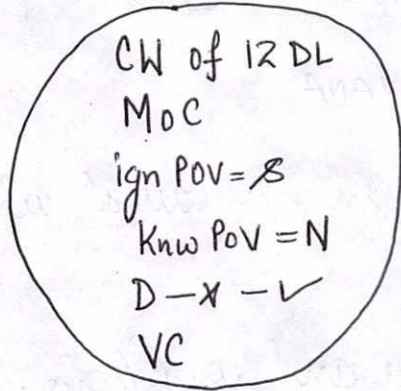 CW of 12 DL
MoC
ign POV = S
Knw PoV = N
D – x – ✓
VC